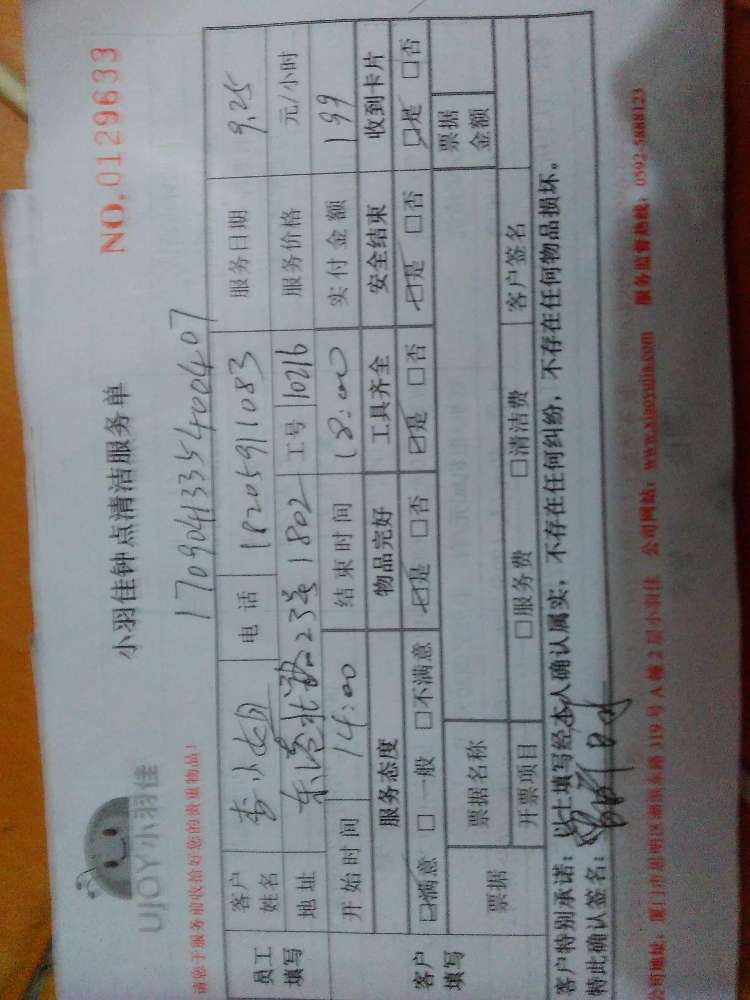 UJOY小羽佳
小羽佳钟点清洁服务单
NO.0129633
请您于服务前收拾好您的贵重物品!
1709041335400407
员工填写
客户姓名 李小姐 电话 18205911083 服务日期 9.25
地址 东港北路23号1802 工号 10216 服务价格 元/小时
开始时间 14:00 结束时间 18:00 实付金额 199
客户填写
服务态度 物品完好 工具齐全 安全结束 收到卡片
☑满意 □一般 □不满意 ☑是 □否 ☑是 □否 ☑是 □否 ☑是 □否
票据 票据名称 票据金额
开票项目 □服务费 □清洁费 客户签名
客户特别承诺:以上填写经本人确认属实,不存在任何纠纷,不存在任何物品损坏。
特此确认签名:
公司地址:厦门市思明区湖滨东路319号A幢2层小羽佳 公司网站:www.xiaoyujia.com 服务监督热线:0592-5888123